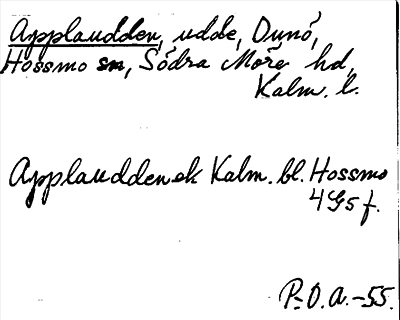 Applaudden, udde, Dunö,
Hossmo sn, Södra Möre hd,
Kalm. l.
Applaudden ek Kalm. bl. Hossmo
4G5f.
P-O.A.-55.